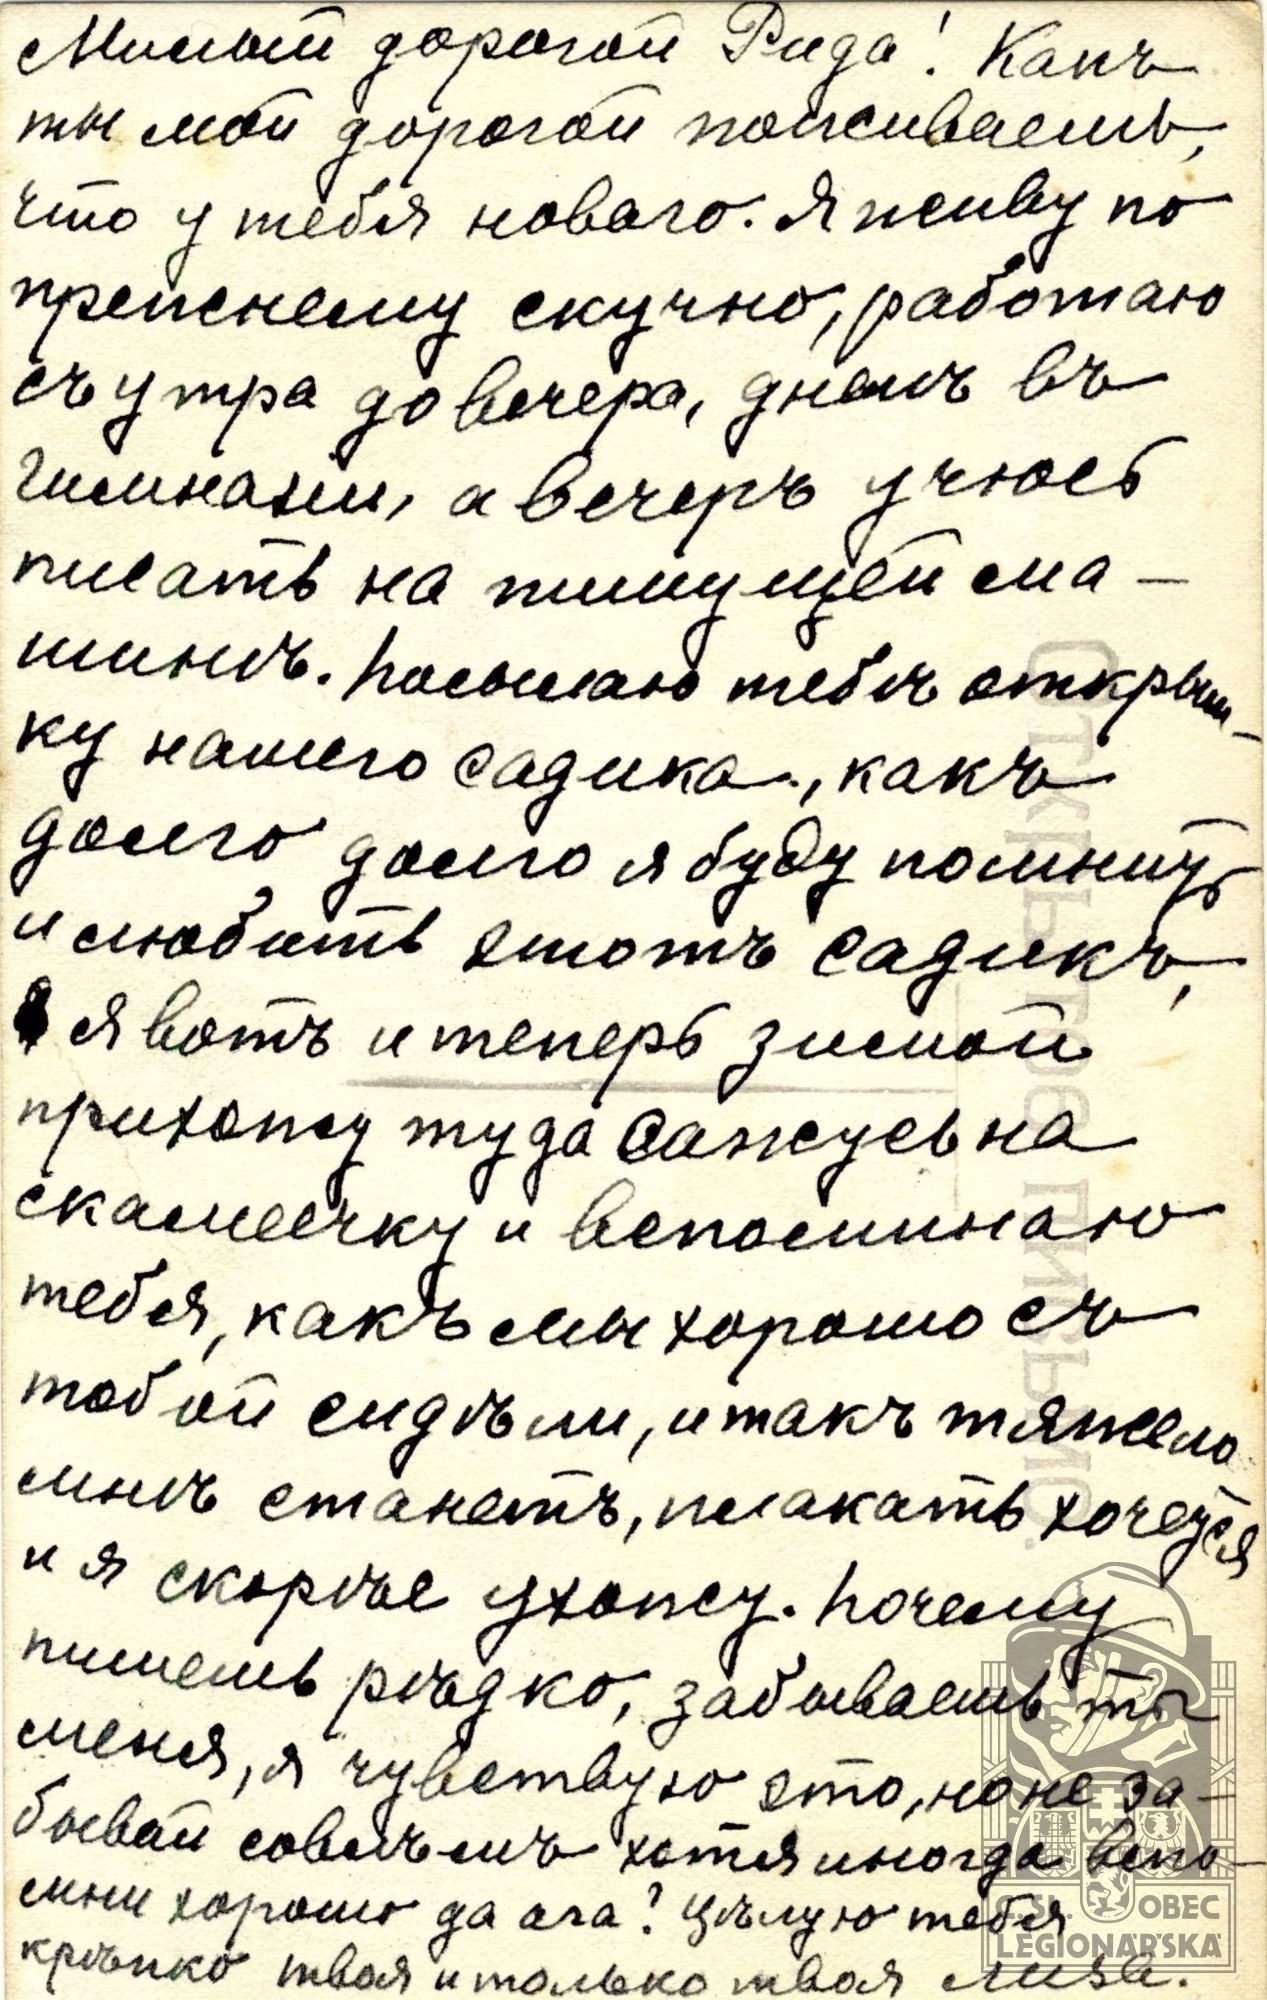 Милый дорогой Рида! Какъ
ты мой дорогой поживаешь,
что у тебя новаго. Я живу по
прежнему скучно, работаю
съ утра до вечера, днемъ въ
гимназіи, а вечеръ учюсь
писать на пишущей ма-
шинѣ. Посылаю тебѣ открыт-
ку нашего садика, какъ
долго долго я буду помнить
и любить этотъ садикъ,
я вотъ и теперь зимой
прихожу туда сажусь на
скамеечку и вспоминаю
тебя, какъ мы хорошо съ
тобой сидѣли, и такъ тяжело
мнѣ станетъ, плакать хочется
и я скорѣе ухожу. Почему
пишешь рѣдко, забываешь ты
меня, я чувствую это, но не за-
бывай совсѣмъ хотя иногда вспо-
мни хорошо да ага? Цѣлую тебя
крѣпко твоя и только твоя Лиза.
ОТКРЫТОЕ ПИСЬМО.
Č.SL. OBEC
LEGIONÁŘSKÁ